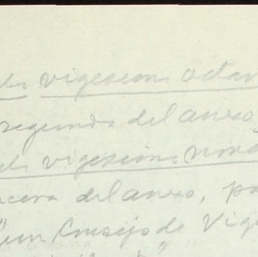 vigesimo octav
segundo del anexo
vigesimo nov
cera del anexo, pa
"un Consejo de Vigi